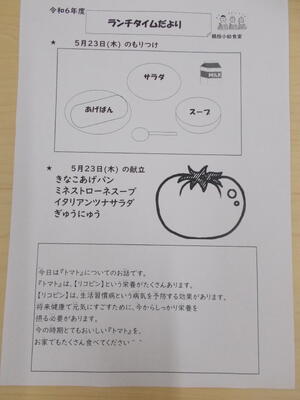 令和6年度
ランチタイムだより
小給食室
★ 5月23日(木) のもりつけ
サラダ
MILK
あげぱん
スープ
★ 5月23日(木) の献立
きなこあげパン
ミネストローネスープ
イタリアンツナサラダ
ぎゅうにゅう
今日は『トマト』についてのお話です。
『トマト』は、【リコピン】という栄養がたくさんあります。
【リコピン】は、生活習慣病という病気を予防する効果があります。
将来健康で元気にすごすために、今からしっかり栄養を
摂る必要があります。
今の時期とてもおいしい『トマト』を、
お家でもたくさん食べてください^^